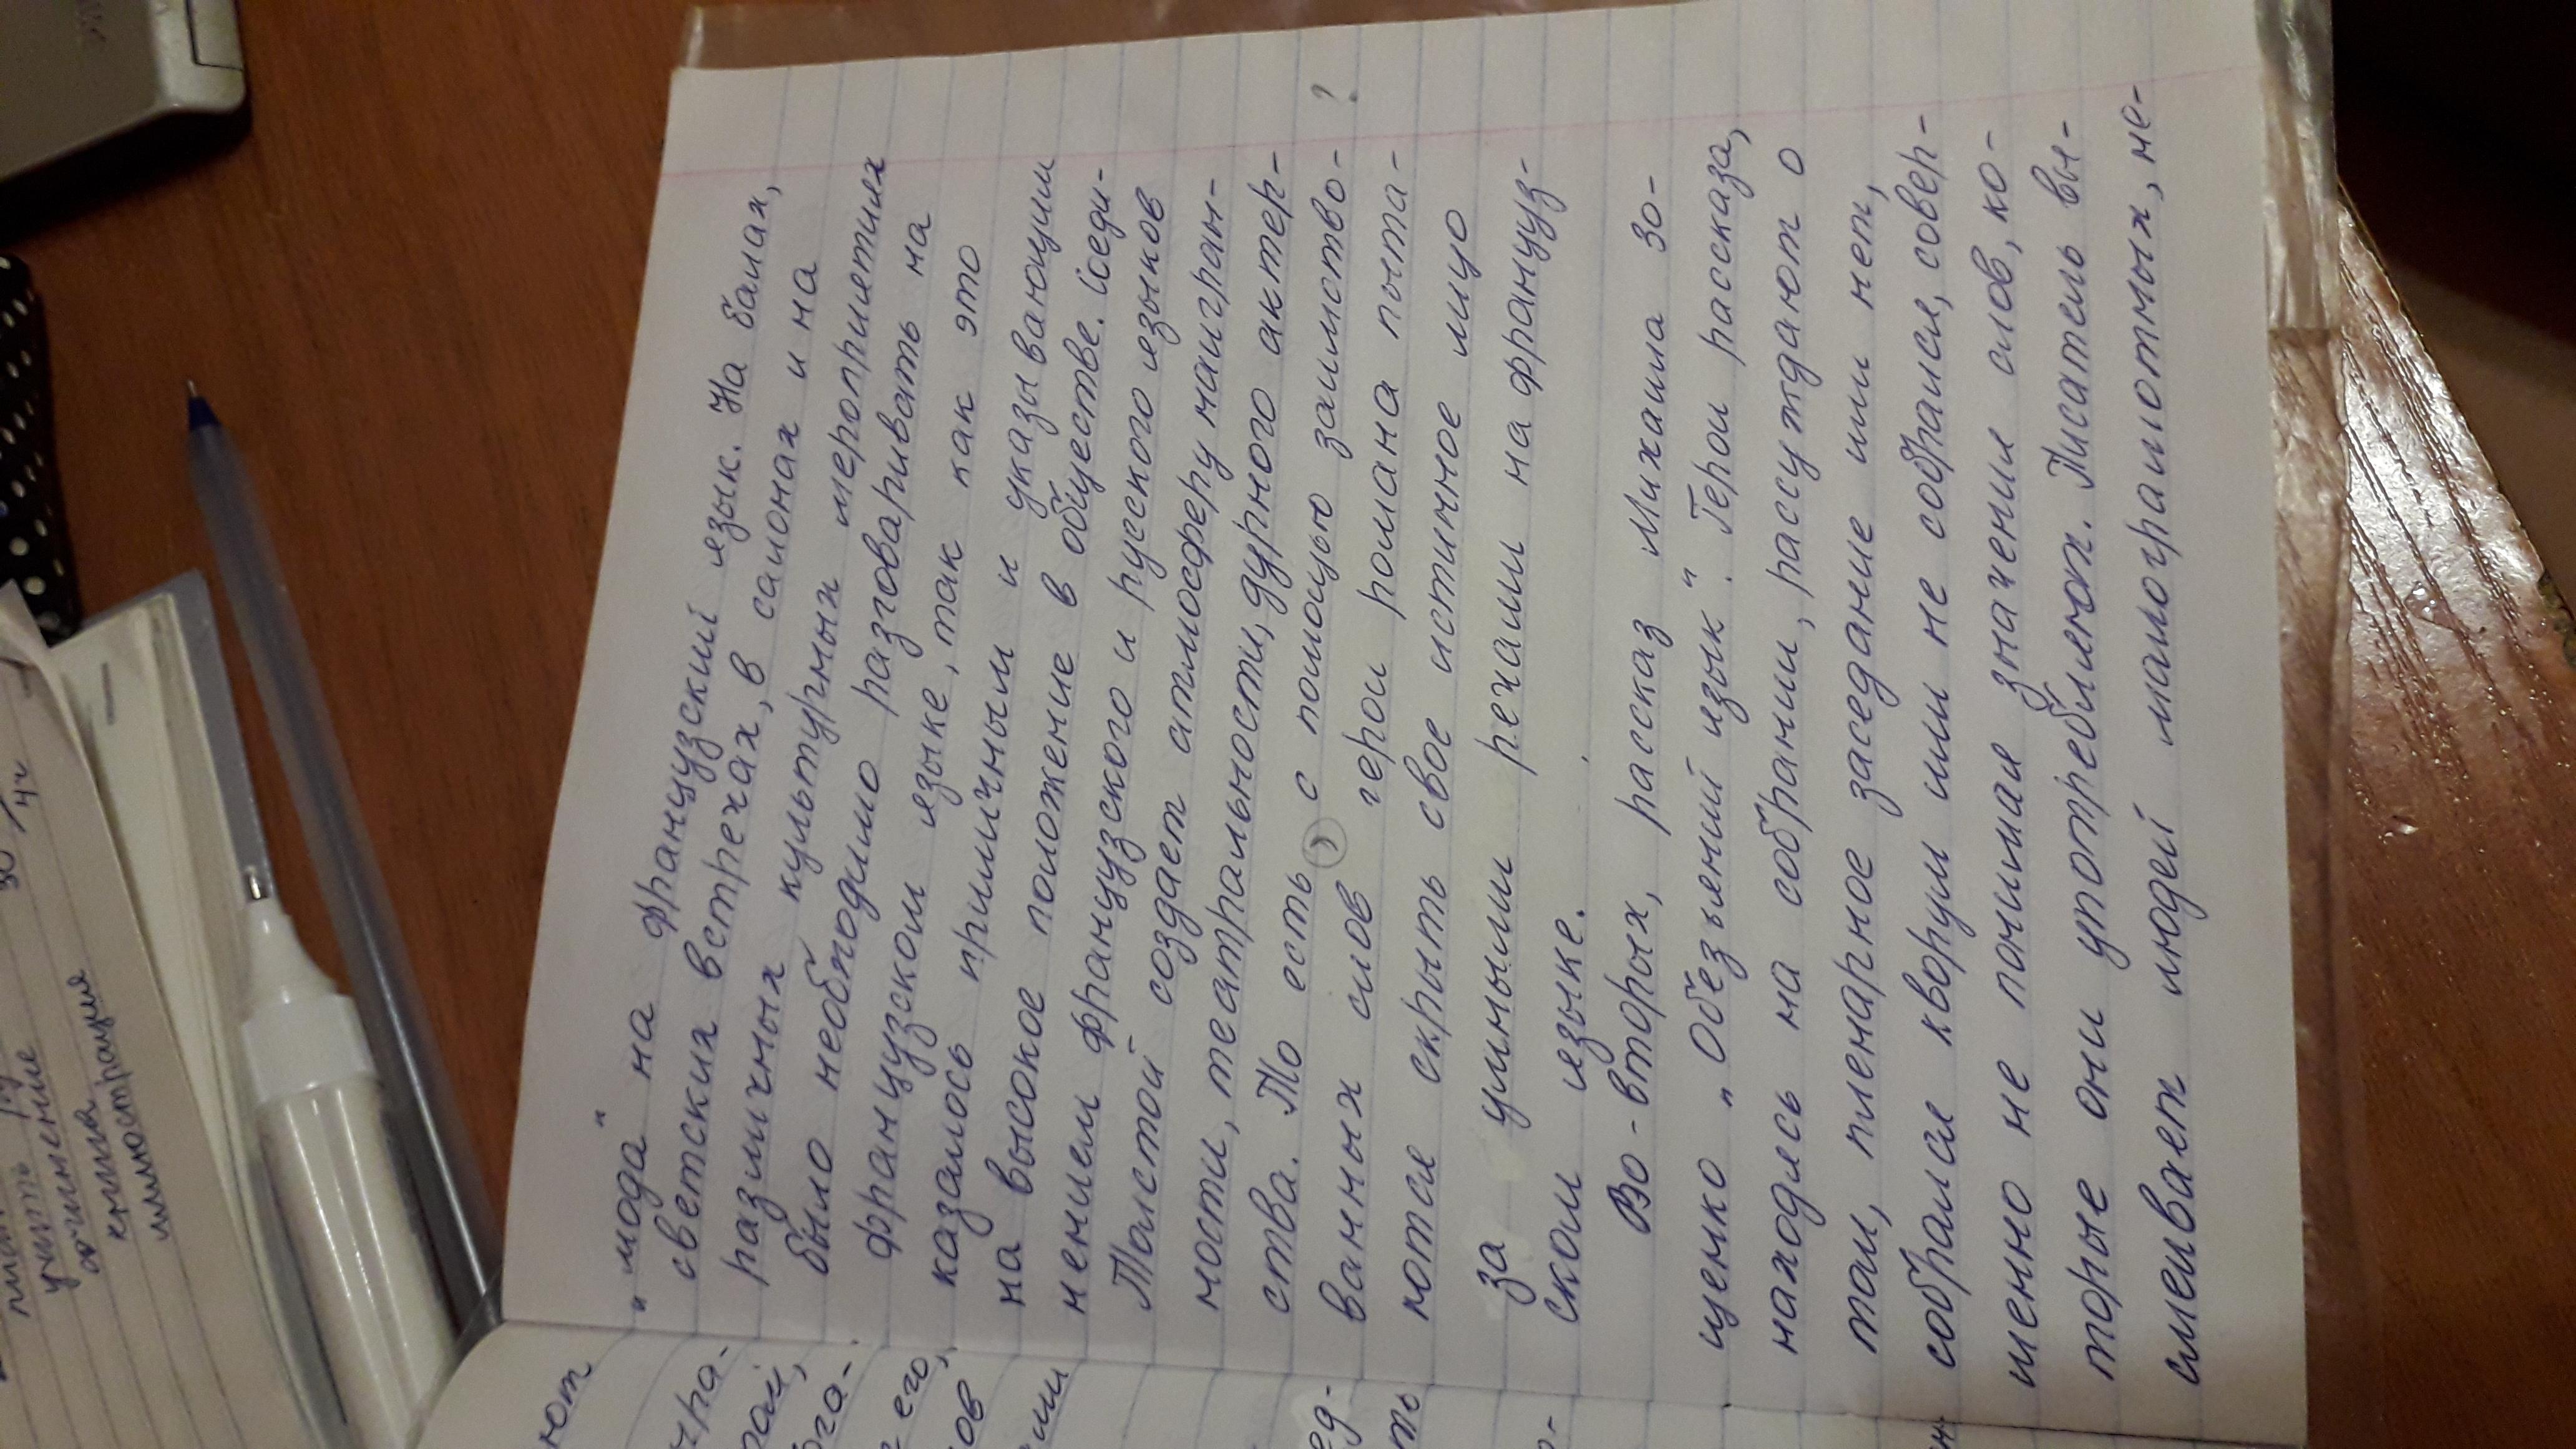 „мода" на французский язык. На балах,
светских встречах, в салонах и на
различных культурных мероприятиях
было необходимо разговаривать на
французском языке, так как это
казалось приличным и указывающим
на высокое положение в обществе. Соеди-
нением французского и русского языков
Толстой создает атмосферу наигран-
ности, театральности, дурного актер-
ства. То есть, с помощью заимство- ?
ванных слов герои романа пыта-
ются скрыть свое истинное лицо
за умными речами на француз-
ском языке.
Во-вторых, рассказ Михаила Зо-
щенко „Обезьяний язык". Герои рассказа,
находясь на собрании, рассуждают о
том, пленарное заседание или нет,
собрался кворум или не собрался, совер-
шенно не понимая значения слов, ко-
торые они употребляют. Писатель вы-
смеивает людей малограмотных, не-
учение
книга
иллюстрация
ют
его,
ов